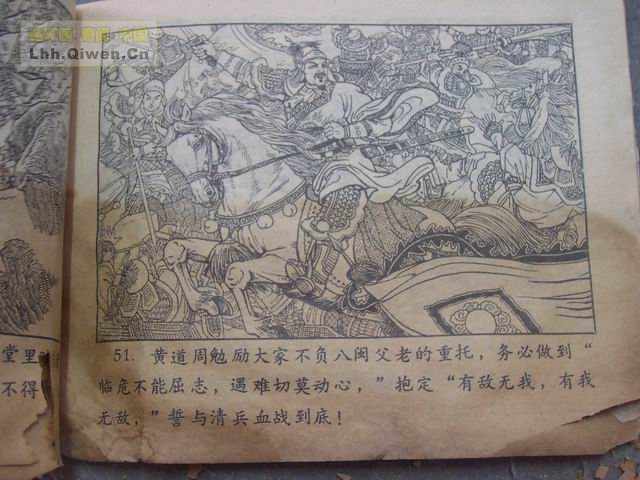 连环画 易趣 中国
Lhh.Qiwen.Cn
堂里
不得
51. 黄道周勉励大家不负八闽父老的重托，务必做到“
临危不能屈志，遇难切莫动心，”抱定“有敌无我，有我
无敌，”誓与清兵血战到底！